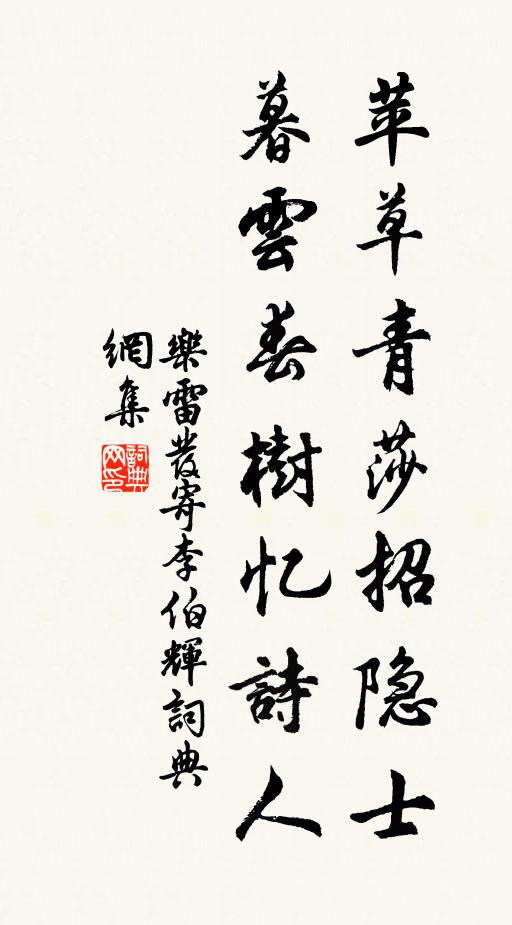 苹草青莎招隐士
暮雲春樹忆詩人
樂雷發寄李伯輝詞典
網集
詞典
网印